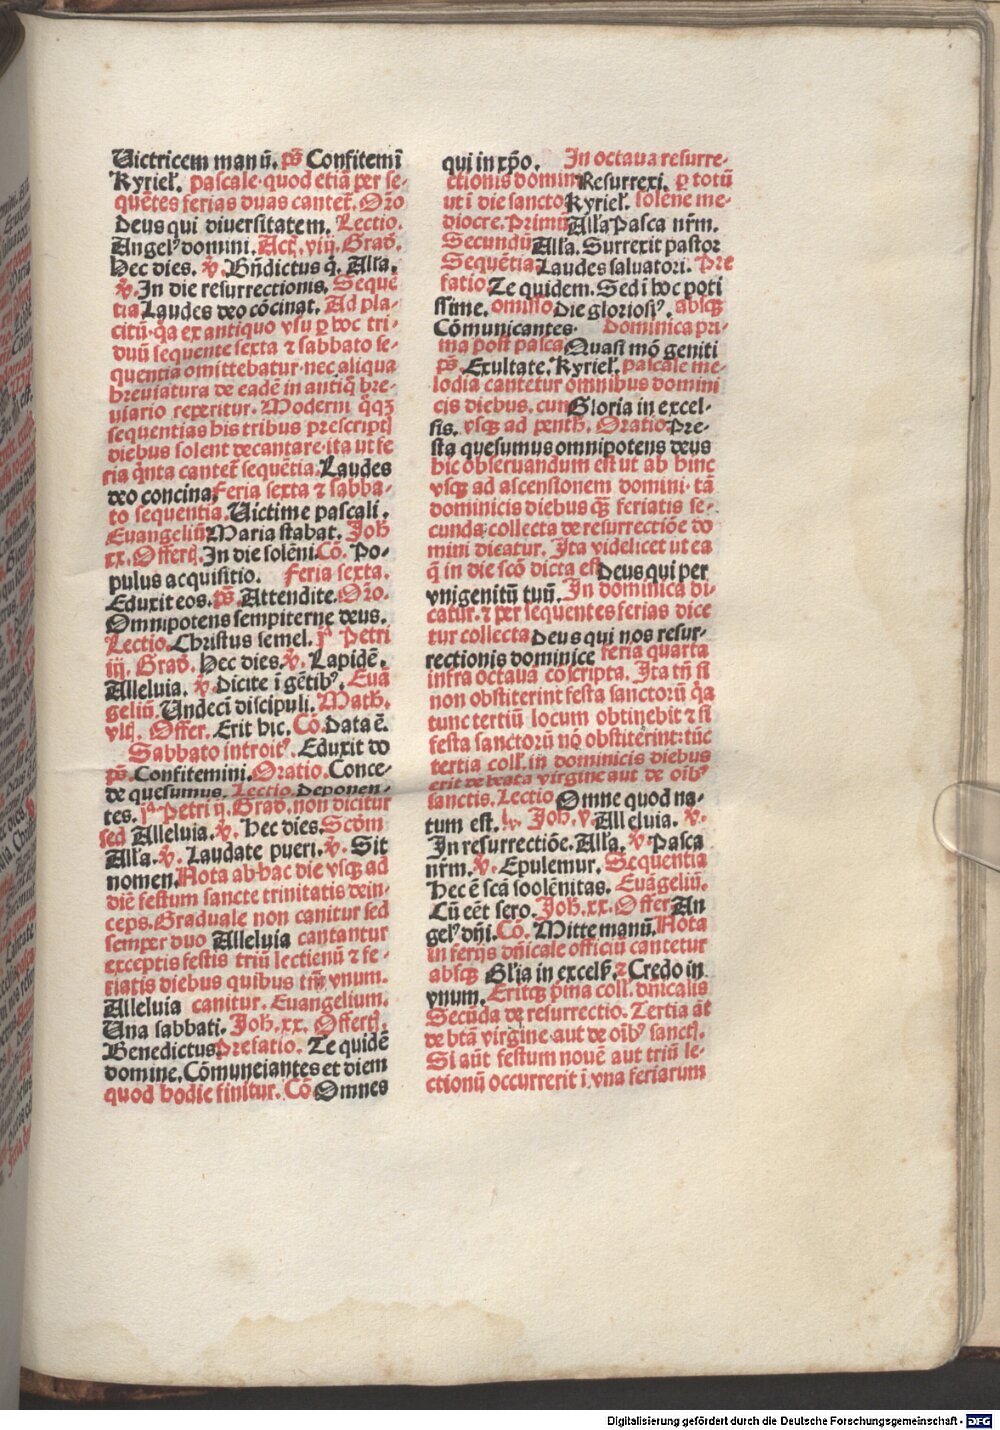 Victricem manū. p̄s Confitemī
Kyriel̕. pascale·quod etiā per se-
quētes ferias duas cantet̕. Oro
Deus qui diversitatem. Lectio.
Angel̕ domini. Act̕. viij. Grad̕.
Hec dies. ℣. Bn̄dictus q̄. Alla.
℣. In die resurrectionis. Sequē
tia Laudes deo cōcinat. Ad pla-
citū·q̄a ex antiquo vsu ꝑ hoc tri-
duū sequente sexta ⁊ sabbato se-
quentia omittebatur·nec aliqua
breviatura de eadē in antiq̄ bre-
uiario reperitur. Moderni q̄qꝫ
sequentias his tribus prescriptꝭ
diebus solent decantare·ita ut fe
ria q̄nta cantet̕ sequētia. Laudes
deo concina. feria sexta ⁊ sabba-
to sequentia. Victime pascali.
Euangeliū Maria stabat. Joh̄
xx. Offertꝭ. In die solēni. Cō. Po-
pulus acquisitio. feria sexta.
Eduxit eos. p̄s. Attendite. Oro.
Omnipotens sempiterne deus.
Lectio. Christus semel. jᵃ Petri
iij. Grad̕. Hec dies. ℣. Lapidē.
Alleluia. ℣. Dicite ī gētibꝰ. Euā
geliū. Undecī discipuli. Math̄.
vltꝭ. Offer. Erit hic. Cō. Data ē.
Sabbato introitꝰ. Eduxit do
p̄s. Confitemini. Oratio. Conce-
de quesumus. Lectio. Deponen-
tes. jᵃ Petri ij. Grad̕. non dicitur
sed Alleluia. ℣. Hec dies. Scdm̄
All̕a. ℣. Laudate pueri. ℣. Sit
nomen. Nota ab hac die vsqꝫ ad
diē festum sancte trinitatis dein-
ceps. Graduale non canitur sed
semper duo Alleluia cantantur
exceptis festis triū lectienū ⁊ fe-
riatis diebus quibus tm̄ vnum.
Alleluia canitur. Euangelium.
Una sabbati. Joh̄. xx. Offertꝭ.
Benedictus. Prefatio. Te quidē
domine. Cōmuneiantes et diem
quod hodie finitur. Cō Omnes
qui in xp̄o. In octaua resurre-
ctionis domini Resurrexi. ꝑ totū
ut ī die sancto Kyriel̕. solēne me-
diocre. Primū All̕a Pasca nr̄m.
Secundū All̕a. Surrexit pastor
Sequētia Laudes saluatori. Pre
fatio Te quidem. Sed ī hoc poti
ssime. omisso Die gloriosiꝰ. absqꝫ
Cōmunicantes. Dominica pri-
ma post pasca Quasi mō geniti
p̄s. Exultate. Kyriel̕. pascale me-
lodia cantetur omnibus domini
cis diebus. cum Gloria in excel-
sis. vsqꝫ ad penth̄. Oratio Pre-
sta quesumus omnipotens deus
hic obseruandum est ut ab hinc
vsqꝫ ad ascensionem domini·tā
dominicis diebus qꝫ̄ feriatis se-
cunda collecta de resurrectiōe do
mini dicatur. Ita videlicet ut ea
q̄ in die scō dicta est Deus qui per
vnigenitū tuū. In dominica di-
catur. ⁊ per sequentes ferias dice
tur collecta Deus qui nos resur-
rectionis dominice feria quarta
infra octaua cōscripta. Ita tn̄ si
non obstiterint festa sanctorū q̄a
tunc tertiū locum obtinebit ⁊ si
festa sanctorū nō obstiterint: tūc
tertia coll̕. in dominicis diebus
erit de beata virgine aut de oībꝰ
sanctis. Lectio Omne quod na-
tum est. jᵃ. Joh̄. v. Alleluia. ℣.
In resurrectiōe. All̕a. ℣. Pasca
nr̄m. ℣. Epulemur. Sequentia
Hec ē scā soolēnitas. Euāgeliū.
Cū eēt sero. Joh̄. xx. Offer An
gel̕ dn̄i. Cō. Mitte manū. Nota
in ferijs dn̄icale officiū cantetur
absqꝫ Gl̕ia in excelꝭ. ⁊ Credo in
vnum. Eritqꝫ p̄ma coll̕. dn̄icalis
Secūda de resurrectio. Tertia aūt
de btā virgine aut de oībꝰ sanctꝭ.
Si aūt festum nouē aut triū le-
ctionū occurrerit ī vna feriarum
Digitalisierung gefördert durch die Deutsche Forschungsgemeinschaft - DFG